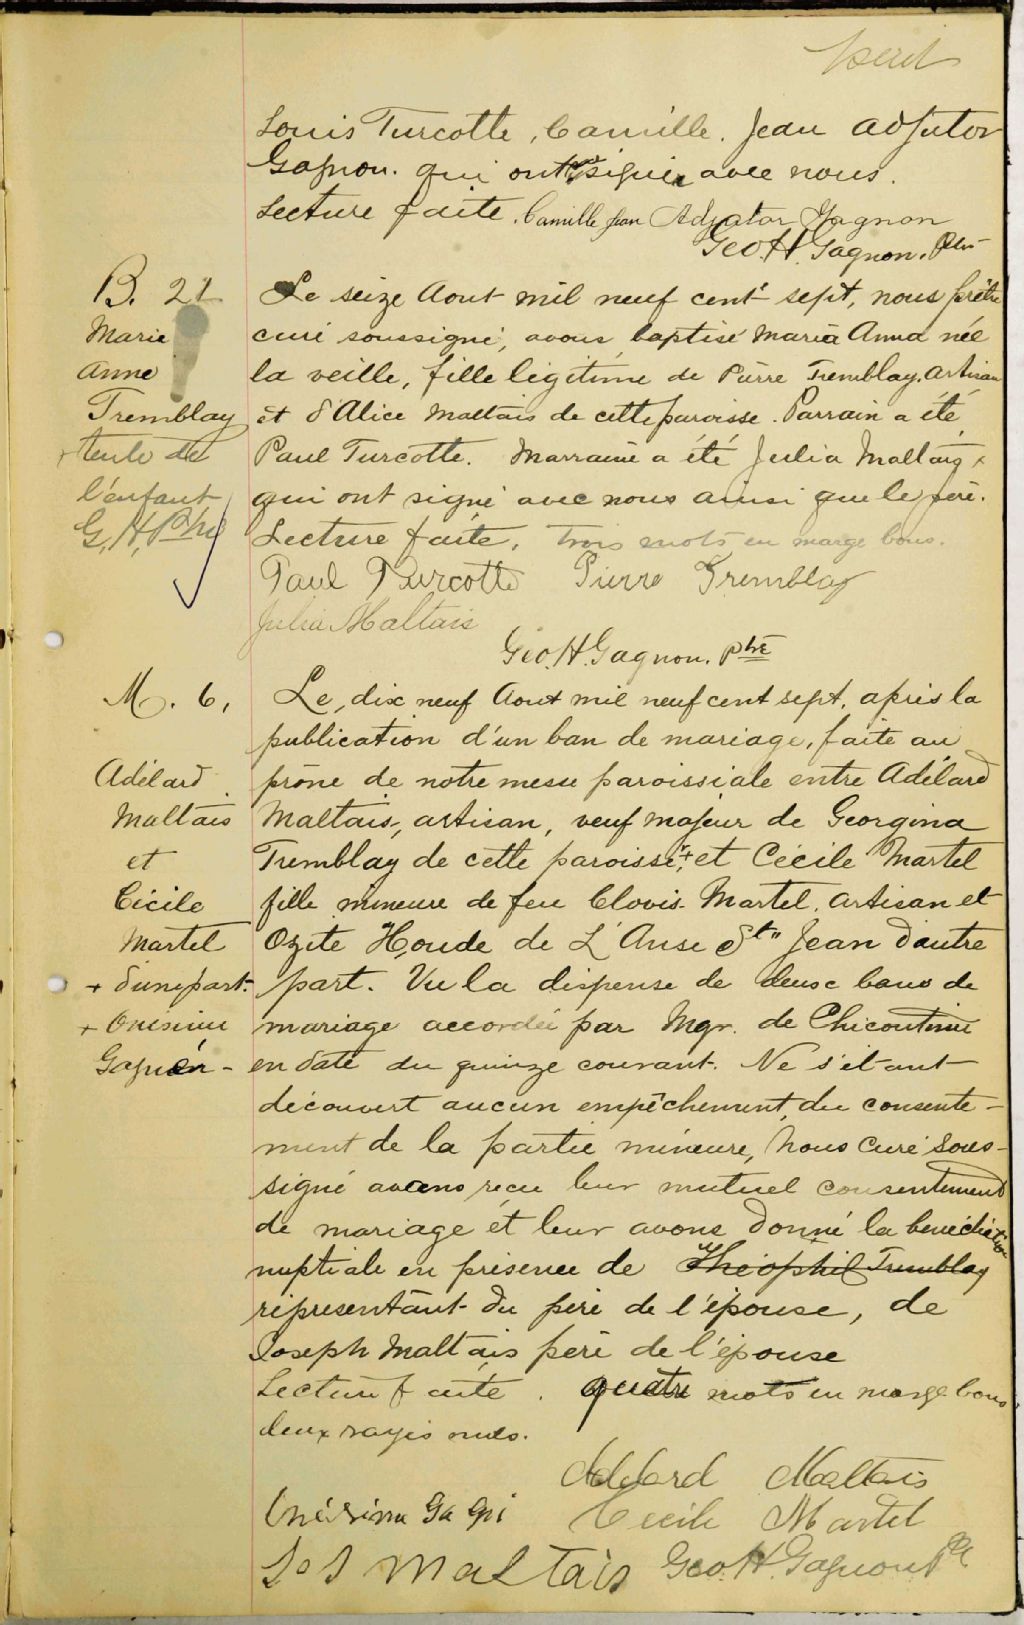 Louis Turcotte, Camille. Jean Adjutor
Gagnon. qui ont signé avec nous.
Lecture faite. Camille Jean Adjutor Gagnon
Geo. H. Gagnon. Ptre
B. 21
Marie
Anne
Tremblay
+ tente de
l'enfant
G. H. Ptre
Le seize Aout mil neuf cent sept, nous prêtre
curé soussigné, avons baptisé Maria Anna née
la veille, fille légitime de Pierre Tremblay, artisan
et d'Alice Maltais de cette paroisse. Parrain a été
Paul Turcotte. Marraine a été Julia Maltais +
qui ont signé avec nous ainsi que le père.
Lecture faite. Trois mots en marge bons.
Paul Turcotte Pierre Tremblay
Julia Maltais
Geo. H. Gagnon. Ptre
M. 6,
Adélard
Maltais
et
Cécile
Martel
+ d'une part.
+ Onésime
Gagnon -
Le, dix neuf Aout mil neuf cent sept, après la
publication d'un ban de mariage, faite au
prône de notre messe paroissiale entre Adélard
Maltais, artisan, veuf majeur de Georgina
Tremblay de cette paroisse, + et Cécile Martel
fille mineure de feu Clovis Martel, artisan et
Ozite Houde de L'Anse St" Jean d'autre
part. Vu la dispense de deux bans de
mariage accordée par Mgr. de Chicoutimi
en date du quinze courant. Ne s'étant
découvert aucun empêchement, du consente-
ment de la partie mineure, Nous Curé sous-
signé avons reçu leur mutuel consentement
de mariage et leur avons donné la bénédiction
nuptiale en présence de Théophile Tremblay
représentant du père de l'épouse, de
Joseph Maltais père de l'épouse
Lecture faite. quatre mots en marge bons
deux rayés nuls.
Adelard Maltais
Onésime Ga Gni Cecile Martel
Jos Maltais Geo. H. Gagnon Ptr